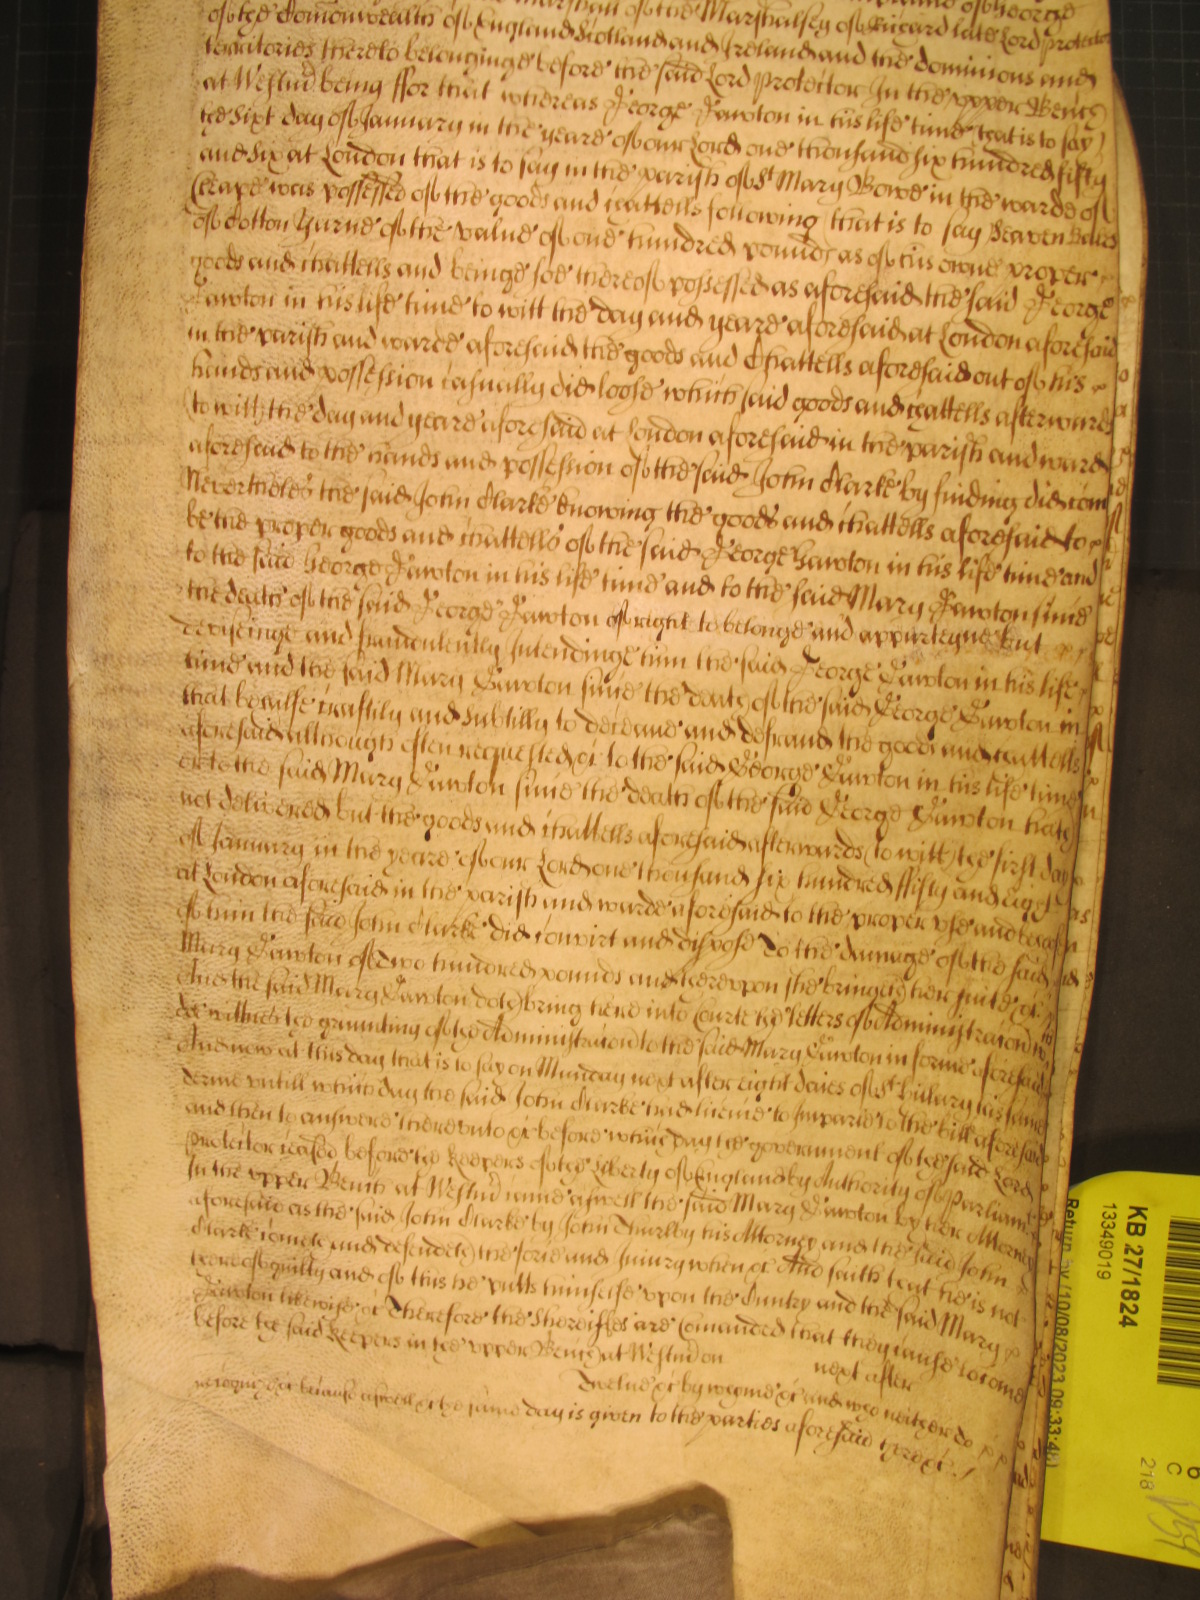 Marshall of the Marshalsey of Richard late Lord protector
of the Comonwealth of England Scotland and Ireland and the dominions and
territories thereto belonginge before the said Lord protector In the vpper Bench
at Westmr being ffor that whereas George Hawton in his life time that is to say
the Sixt day of January in the yeare of our Lord one thousand six hundred fifty
and six at London that is to say in the parish of St Mary Bowe in the warde of
Cheape was possessed of the goods and chattells following that is to say Seaven Bales
of Cotton Yarne of the value of one hundred pounds as of his owne proper
goods and chattells and beinge soe thereof possessed as aforesaid the said George
Hawton in his life time to witt the day and yeare aforesaid at London aforesaid
in the parish and warde aforesaid the goods and Chattells aforesaid out of his
hands and possession casually did loose which said goods and chattells afterwards
to witt the day and yeare aforesaid at London aforesaid in the parish and ward
aforesaid to the hands and possession of the said John Clarke by finding did come
Neverthelesse the said John Clarke knowing the goods and chattells aforesaid to
be the proper goods and chattells of the said George Hawton in his life time and
to the said George Hawton in his life time and to the said Mary Hawton since
the death of the said George Hawton of right to belonge and apperteyne But
deviseinge and fraudulently Intendinge him the said George Hawton in his life
time and the said Mary Hawton since the death of the said George Hawton in
that behalfe craftily and subtilly to deceave and defraud the goods and chattells
aforesaid although often requested &c to the said George Hawton in his life time
or to the said Mary Hawton since the death of the said George Hawton hath
not delivered but the goods and chattells aforesaid afterwards to witt the first day
of January in the yeare of our Lord one thousand six hundred ffifty and eight
at London aforesaid in the parish and warde aforesaid to the proper vse and behoofe
of him the said John Clarke did convirt and dispose To the damage of the said
Mary Hawton of Two hundred pounds and therevpon she bringeth her suite &c
And the said Mary Hawton doth bring here into Courte the letters of Administracon
de wittnes the graunting of the Administracon to the said Mary Hawton in forme aforesaid
And now at this day that is to say on Munday next after eight daies of St Hillary this same
terme vntill which day the said John Clarke had licence to Imparle to the bill aforesaid
and then to answere therevnto &c before which day the government of the said Lord
Protector ceased before the keepers of the Liberty of England by Authority of Parliamt
In the vpper Bench at Westmr came aswell the said Mary Hawton by her Attorney
aforesaid as the said John Clarke by John Thurlby his Attorney and the said John
Clarke cometh and defendeth the force and Iniury when &c And saith that he is not
thereof guilty and of this he putts himselfe vpon the Cuntry and the said Mary
Hawton likewise &c Therefore the Sheriffes are Comanded that they cause to come
before the said keepers in the vpper Bench at Westmr on next after
Twelve &c by whome &c and who neither do
recognize &c because aswell &c the same day is given to the parties aforesaid there &c
KB 27/1824
13349019
Return by (10/08/2023 09:33:48)
C
218